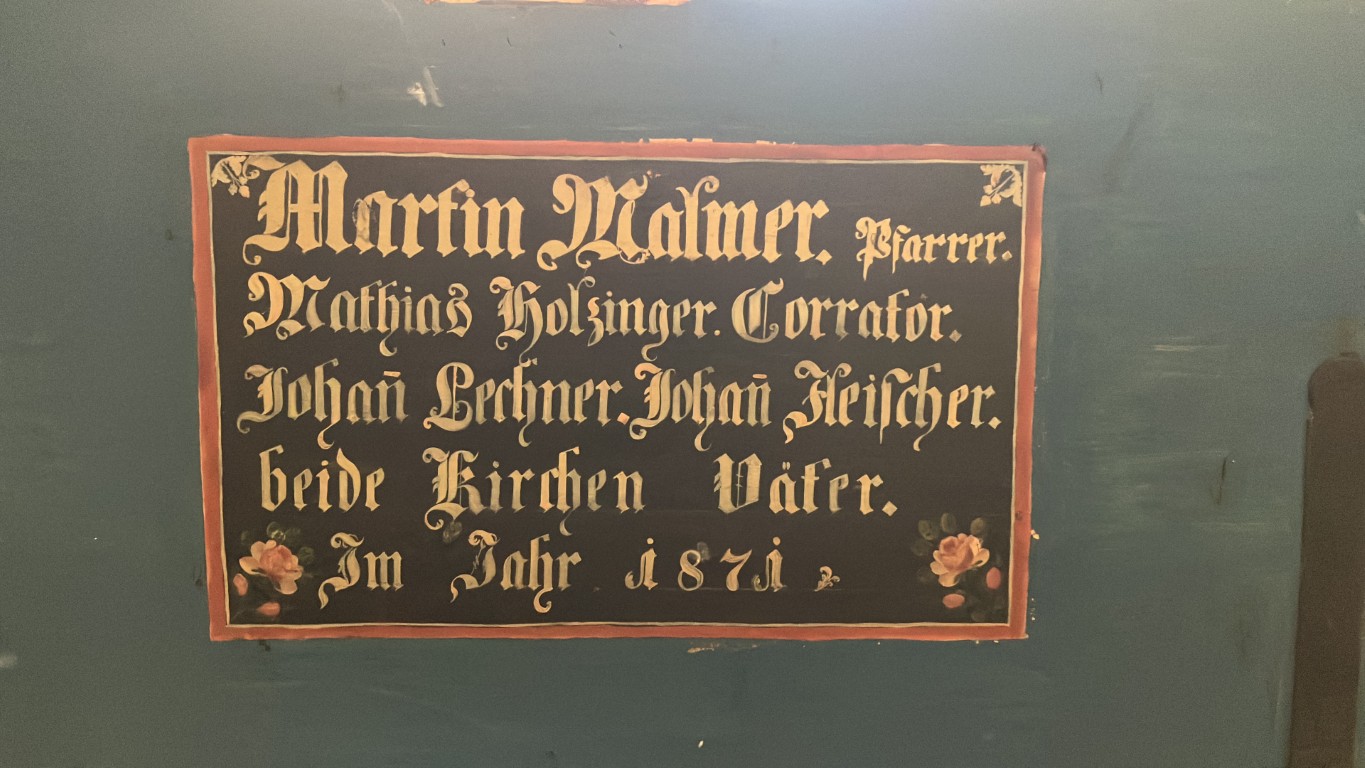 Martin Malmer. Pfarrer.
Mathias Holzinger. Corrator.
Johan̄ Lechner. Johan̄ Fleischer.
beide Kirchen Väter.
Im Jahr 1871.